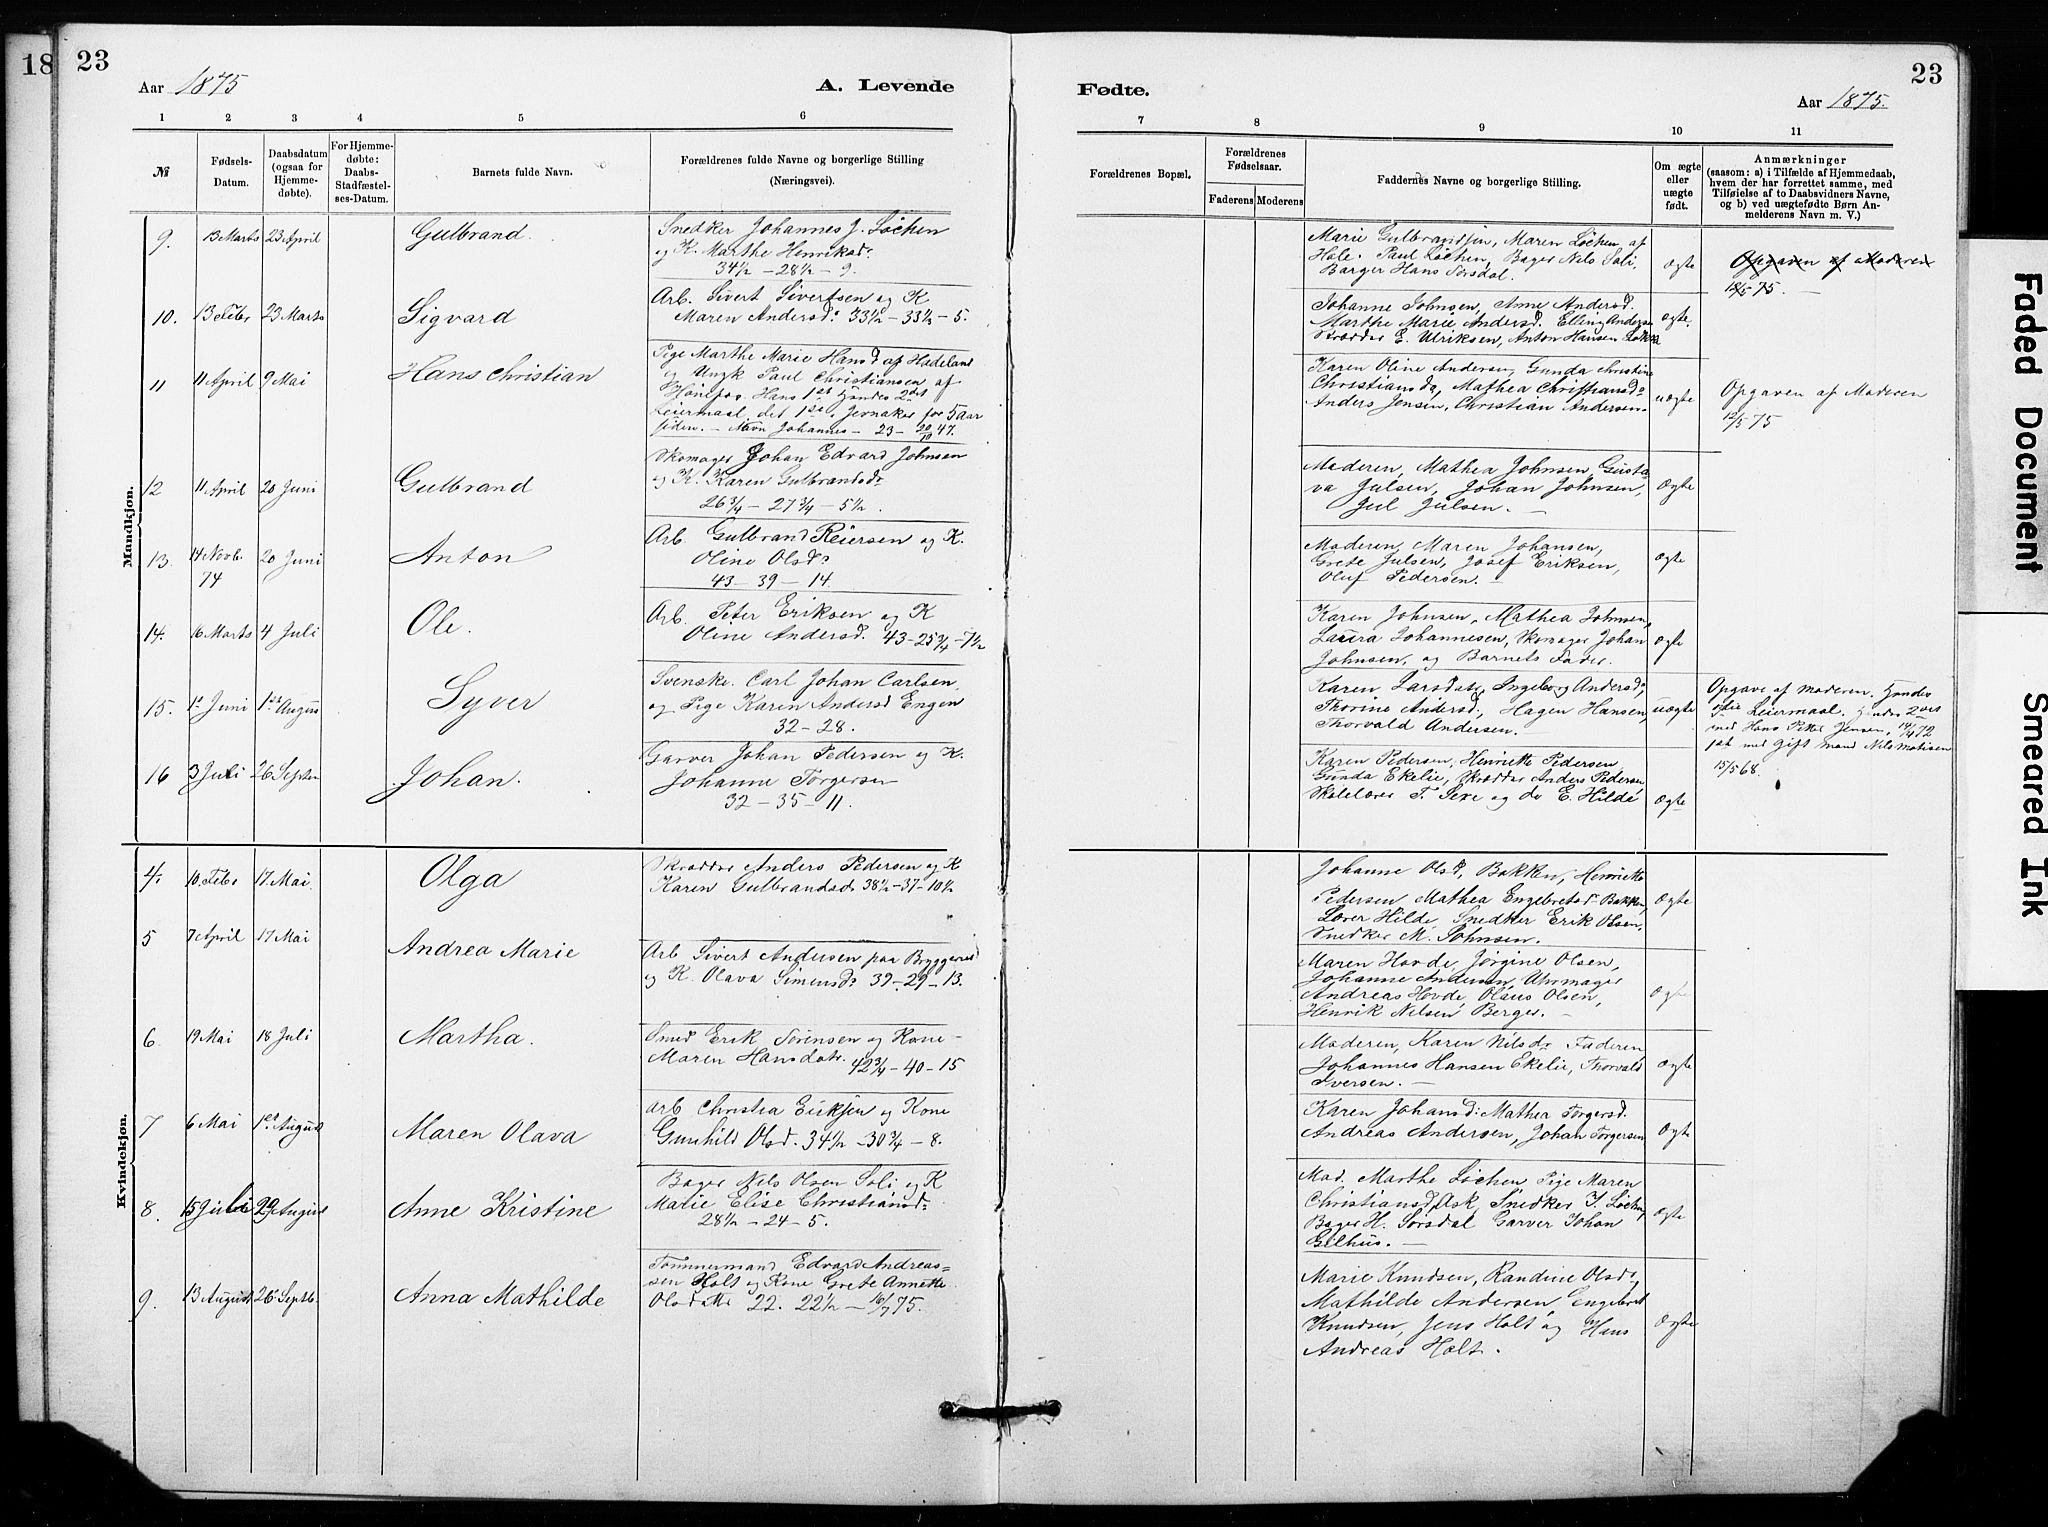 18
23
Aar 1875
A. Levende
Fødte.
23
Aar 1875.
1 2 3 4 5 6 7 8 9 10 11
№
Fødsels-Datum.
Daabsdatum (ogsaa for Hjemmedøbte).
For Hjemmedøbte: Daabs-Stadfæstelses-Datum.
Barnets fulde Navn.
Forældrenes fulde Navne og borgerlige Stilling
(Næringsvei).
Forældrenes Bopæl.
Forældrenes Fødselsaar.
Faderens Moderens
Faddernes Navne og borgerlige Stilling.
Om ægte eller uægte født.
Anmærkninger
(saasom: a) i Tilfælde af Hjemmedaab,
hvem der har forrettet samme, med
Tilføielse af to Daabsvidners Navne,
og b) ved uægtefødte Børn An-
melderens Navn m. V.)
Mandkjøn.
9. 13 Marts 23 April Gulbrand.
Snedker Johannes J. Løchen
og K. Marthe Henriksd:
34½ - 28½ - 9.
Marie Gulbrandsen, Maren Løchen af
Hole. Paul Løchen, Bager Nils Soli,
Barger Hans Sørsdal.
Ægte
Opgaven af Moderen
12/5 75.
10. 13 Febr 23 Marts Sigvard
Arb. Sivert Sivertsen og K
Maren Andersd: 33½ - 33½ - 5.
Johanne Johnsen, Anne Andersd.
Marthe Marie Andersd. Elling Andersen
Skrædder E. Ulriksen, Anton Hansen
Ægte.
11 11 April 9 Mai Hans Christian
Pige Marthe Marie Hansd af Hadeland
og Ungk Paul Christiansen af
Hønefos. Hans 1ste Hendes 2det
Leiermaal, det 1ste i Jevnaker for 5 aar
siden. - Navn Johannes - 23 - 20/10 47.
Karen Oline Anders, Gunda Christine
Christiansd, Mathea Christiansd:
Anders Jensen, Christian Andersen.
uægte
Opgaven af Moderen
12/5 75
12 11 April 20 Juni Gulbrand
Skomager Johan Edvard Johnsen
og K. Karen Gulbrandsd:
26¾ - 27¾ - 5½.
Moderen, Mathea Johnsen, Gusta-
va Julsen, Johan Johnsen,
Jul Julsen. -
Ægte
13. 14 Novb. 74 20 Juni Anton
Arb. Gulbrand Reiersen og K.
Oline Olsd:
43 - 39 - 14.
Moderen, Maren Johansen,
Grete Julsen, Josef Eriksen,
Oluf Pedersen. -
Ægte
14. 16 Marts 4 Juli Ole.
Arb. Peter Eriksen og K
Oline Andersd. 43 - 25¾ - 7½
Karen Johnsen, Mathea Johnsen,
Laura Johannesen, Skomager Johan
Johnsen, og Barnets Fader.
Ægte
15. 1ste Juni 1ste August Syver
Svenske. Carl Johan Carlsen,
og Pige Karen Andersd Engen
32 - 28.
Karen Larsdatr, Ingeborg Andersd:,
Thorine Andersd, Hagen Hansen,
Thorvald Andersen. -
uægte
Opgave af moderen. Hendes
3die Leiermaal. Hendes 2det
med Hans Petter Jensen, 14/4 72
1ste med gift mand Nils Matisen
15/5 68.
16 3 Juli 26 Septer Johan.
Garver Johan Pedersen og K.
Johanne Torgersen
32 - 35 - 11.
Karen Pedersen, Henriette Pedersen,
Gunda Ekelie, Skrædder Anders Pedersen
Skolelærer T. Sexe og do E. Hilde
Ægte
Kvindekjøn.
4. 10. Febr 17 Mai. Olga
Skrædder Anders Pedersen og K
Karen Gulbrandsd: 38½ - 37 - 10½
Johanne Olsd, Bakken, Henriette
Pedersen Mathea Engebretsd: Bakken
Lærer Hilde, Snedker Erik Olsen,
Snedker M. Johnsen.
Ægte
5 7 April 17 Mai Andrea Marie
Arb Sivert Andersen paa Bryggeriet
og K. Olava Simensd: 39 - 29 - 13.
Maren Hovde, Jørgine Olsen,
Johanne Andersen, Uhrmager
Andreas Hovde, Olaus Olsen,
Henrik Nilsen Berger. -
Ægte
6. 19 Mai 18 Juli Martha.
Smed Erik Sørensen og Kone
Maren Hansdatr. 42¾ - 40 - 15
Moderen, Karen Nilsd: Faderen,
Johannes Hansen Ekelie, Thorvald
Iversen. -
Ægte
7 6 Mai 1ste August Maren Olava
Arb Christia Eriksen og Kone
Gunhild Olsd. 34½ - 30¾ - 8.
Karen Johansd: Mathea Torgersd.
Andreas Andersen, Johan Torgersen
Ægte
8. 15 Juli 29 August Anne Kristine
Bager Nils Olsen Soli og K
Marie Elise Christiansd:
28½ - 24 - 5.
Mad. Marthe Løchen Pige Maren
Christiansd, Ask, Snedker J. Løchen,
Bager H. Sørsdal Garver Johan
Gilhus. -
Ægte
9. 13 August 26 Septb. Anna Mathilde
Tømmermand Edvard Andreas=
sen Holt og Kone Grete Annette
Olsdatter 22. 22½ - 16/7 75.
Marie Knudsen, Randine Olsd:,
Mathilde Andersen, Engebret
Knudsen, Jens Holt og Hans
Andreas Holt.
Ægte
Faded Document
Smeared Ink